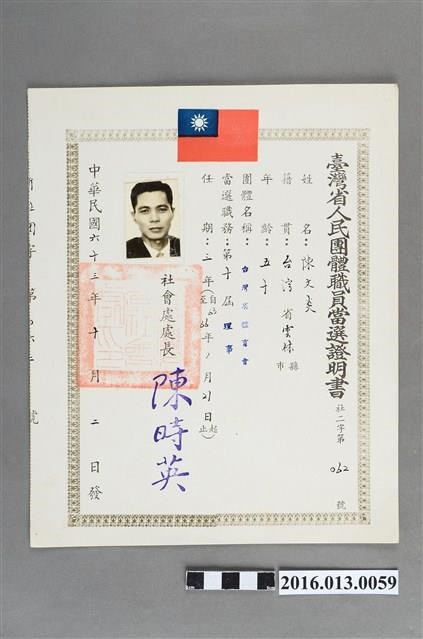 臺灣省人民團體職員當選證明書
社二字第 032 號
姓名：陳文奐
籍貫：台灣省雲林縣市
年齡：五十
團體名稱：台灣省體育會
當選職務：第十屆理事
任期：三年(自63至66年1月21日起止)
社會處處長
陳時英
中華民國六十三年十月二日發
2016.013.0059